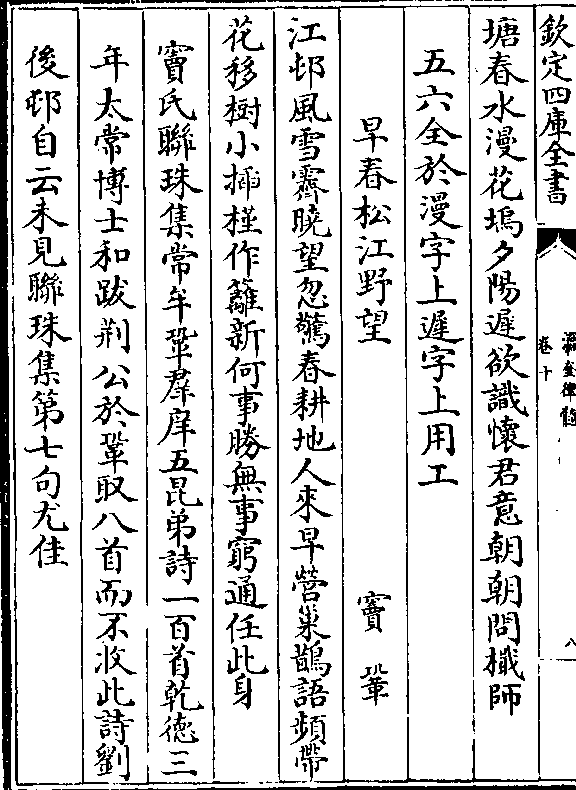 欽定四庫全書
瀛奎律髓
卷十
八
塘春水漫花塢夕陽遲欲識懷君意朝朝問檝師
五六全於漫字上遲字上用工
早春松江野望　竇鞏
江邨風雪霽曉望忽驚春耕地人來早營巢鵲語頻帶
花移樹小揷槿作籬新何事勝無事窮通任此身
竇氏聯珠集常牟鞏羣庠五昆弟詩一百首乾徳三
年太常博士和跋荆公於鞏取八首而不收此詩劉
後邨自云未見聯珠集第七句尤佳